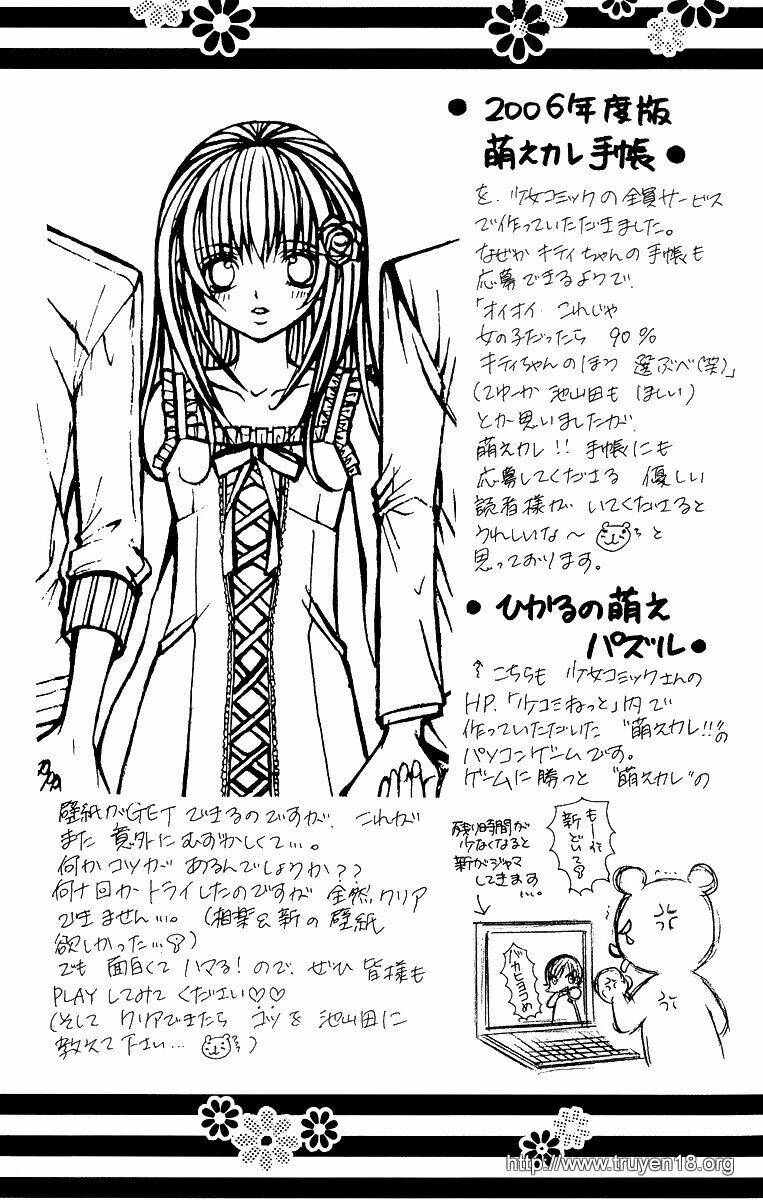 ● 2006年度版
萌えカレ手帳 ●
を、少女コミックの全員サービス
で作っていただきました。
なぜか キティちゃんの手帳も
応募できるようで、
「オイオイ これじゃ
女の子だったら 90%
キティちゃんのほう 選ぶべ(笑)」
(つゆーか 池山田も ほしい)
とか思いましたが、
萌えカレ!! 手帳にも
応募してくださる 優しい
読者様が いてくださると
うれしいな〜 と
思っております。
● ひかるの萌え
パズル ●
↑ こちらも 少女コミックさんの
HP、「少コミねっと」内で
作っていただいた "萌えカレ!!"の
パソコンゲームです。
ゲームに勝つと "萌えカレ"の
壁紙がGETできるのですが、これが
また 意外にむずかしくて…。
何かコツが あるんでしょうか??
何十回かトライしたのですが 全然クリア
できません…。(相葉&新の壁紙
欲しかった…)
でも 面白くて ハマる!ので、ぜひ 皆様も
PLAYしてみて ください♡♡
(そして クリアできたら コツを 池山田に
教えて下さい… )
残り時間が
少なくなると
新がジャマ
してきます
…。
もーっ
新
どいてっ
http://www.truyen18.org